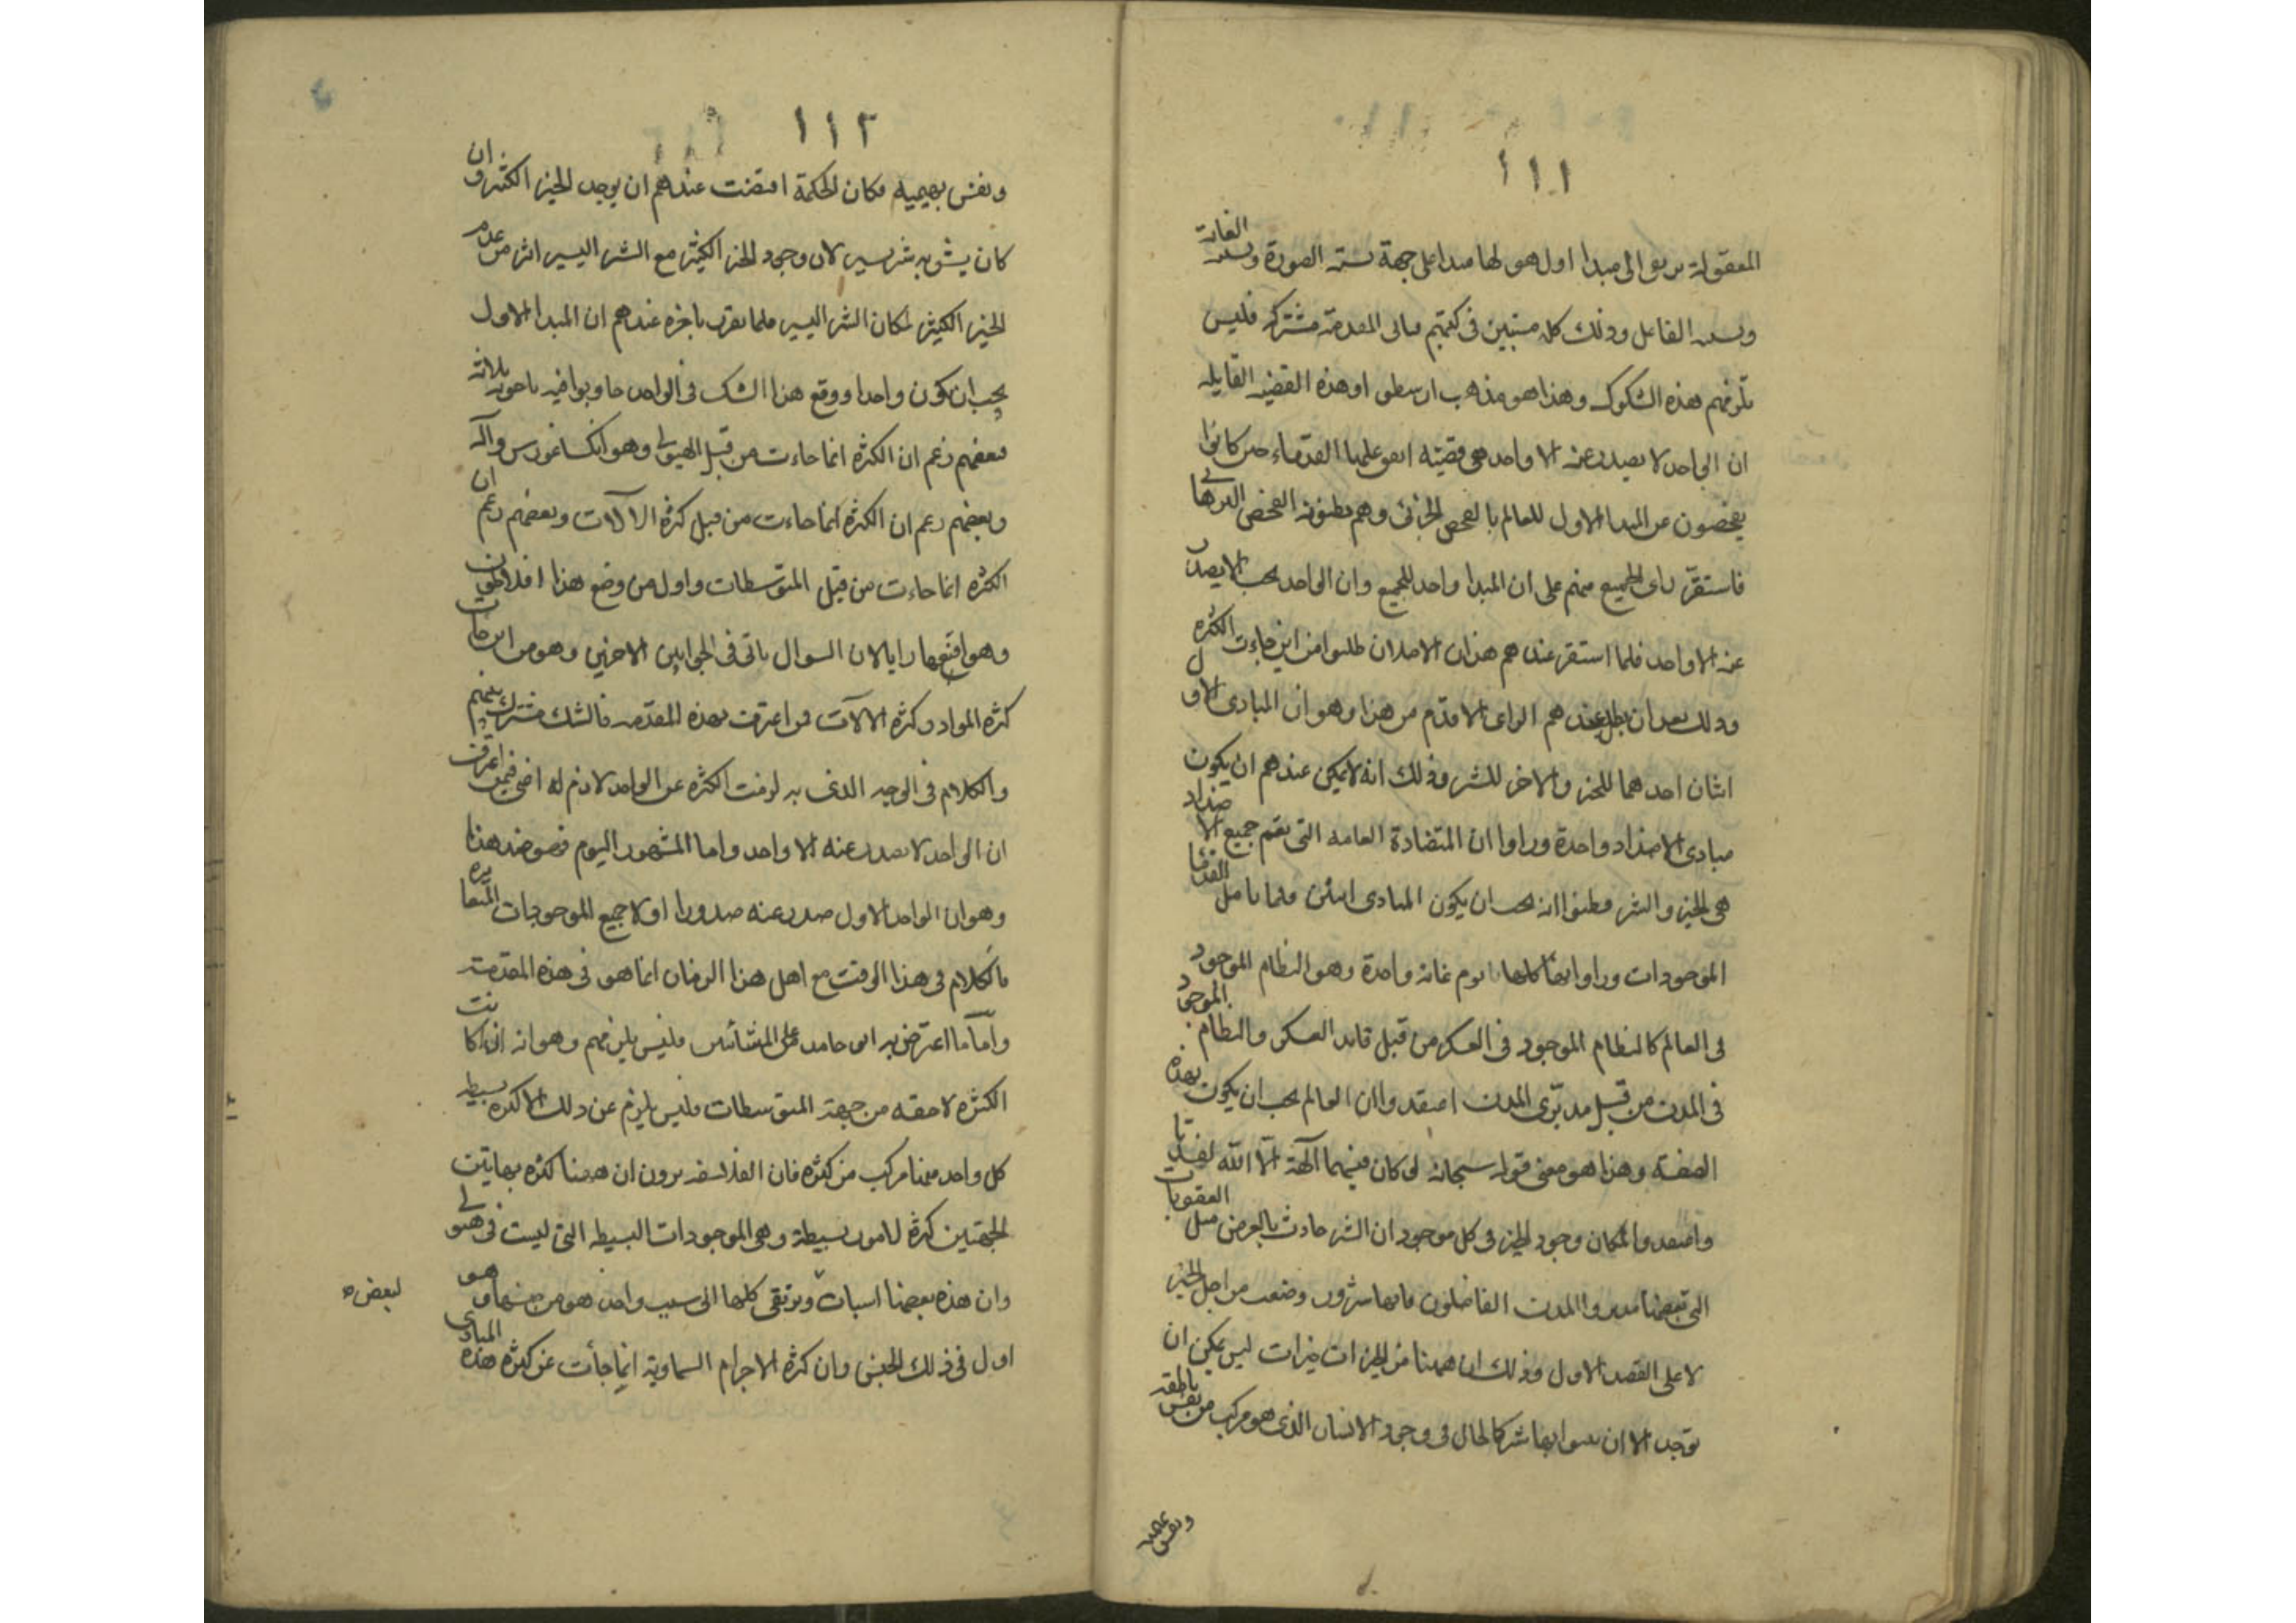 ١١١
المعقولة يرتقي الى مبدا اول هو لها مبدا على جهة نسبة الصورة ونسبة الغاية
ونسبة الفاعل وذلك كله مستبين في كتبهم فتاتي المقدمة مشتركة فليس
تلزمهم هذه الشكوك وهذا هو مذهب ارسطو وهذه القضية القايلة
ان الواحد لا يصدر عنه الا واحد هي قضيته اتفق عليها القدماء حين كانوا
يفحصون عن المبدا الاول للعالم بالفحص الجدلي وهم يظنونه الفحص البرهاني
فاستقر راى الجميع منهم على ان المبدا واحد للجميع وان الواحد يجب الا يصدر
عنه الا واحد فلما استقر عندهم هذان الاصلان طلبوا من اين جاءت الكثرة
وذلك بعد ان بطل عندهم الراى الاقدم من هذا وهو ان المبادى الاول
اثنان احدهما للخير والاخر للشر وذلك انه لا يمكن عندهم ان يكون
مبادى الاضداد واحدة وراوا ان المتضادة العامة التى تعم جميع الاضداد
هى الخير والشر فظنوا انه يجب ان يكون المبادى اثنين فلما تامل القدما
الموجودات وراوا انها كلها تؤم غاية واحدة وهو النظام الموجود
فى العالم كالنظام الموجود فى العسكر من قبل قايد العسكر والنظام الموجود
فى المدن من قبل مدبرى المدن اعتقدوا ان العالم يجب ان يكون بهذه
الصفة وهذا هو معنى قوله سبحانه لو كان فيهما آلهة الا الله لفسدتا
واعتقدوا لمكان وجود الخير فى كل موجود ان الشر حادث بالعرض مثل العقوبات
التى يضعها مدبروا المدن الفاضلون فانها شرور وضعت من اجل الخير
لا على القصد الاول وذلك ان ههنا من الخيرات خيرات ليس يمكن ان
توجد الا ان يشوبها شر كالحال فى وجود الانسان الذى هو مركب من نفس ناطقة
ونفس بهيمية
١١٢
ونفس بهيميه فكان الحكمة اقتضت عندهم ان يوجد الخير الكثير وان
كان يشوبه شر يسير لان وجود الخير الكثير مع الشر اليسير اثر من عدم
الخير الكثير لمكان الشر اليسير فلما تقرر باخرة عندهم ان المبدا الاول
يجب ان يكون واحدا ووقع هذا الشك فى الواحد جاوبوا فيه باجوبة ثلاثة
فبعضهم زعم ان الكثرة انما جاءت من قبل الهيولى وهو انكساغورس وآله
وبعضهم زعم ان الكثرة انما جاءت من قبل كثرة الآلات وبعضهم زعم ان
الكثرة انما جاءت من قبل المتوسطات واول من وضع هذا افلاطون
وهو اقنعها رايا لان السوال ياتى فى الجوابين الاخرين وهو من اين جات
كثرة المواد وكثرة الالات فمن اعترف بهذه المقدمة فالشك مشترك بينهم
والكلام فى الوجه الذى به لزمت الكثرة عن الواحد لازم له اعنى فيمن اعترف
ان الواحد لا يصدر عنه الا واحد واما المشهور اليوم فهو ضد هذا
وهو ان الواحد الاول صدر عنه صدورا اولا جميع الموجودات المتغايرة
فالكلام فى هذا الوقت مع اهل هذا الزمان انما هو فى هذه المقدمة
واما ما اعترض به ابو حامد على المشائين فليس يلزمهم وهو انه ان كانت
الكثرة لاحقه من جهة المتوسطات فليس يلزم عن ذلك الا كثرة بسيطه
كل واحد منها مركب من كثرة فان الفلاسفه يرون ان ههنا كثرة بهاتين
الجهتين كثرة لامور بسيطة وهى الموجودات البسيطه التى ليست فى هيولى
وان هذه بعضها اسباب وترتقى كلها الى سبب واحد هو من جنسها وهو
لبعض
اول فى ذلك الجنس وان كثرة الاجرام السماوية انما جأت عن كثرة هذه المبادى